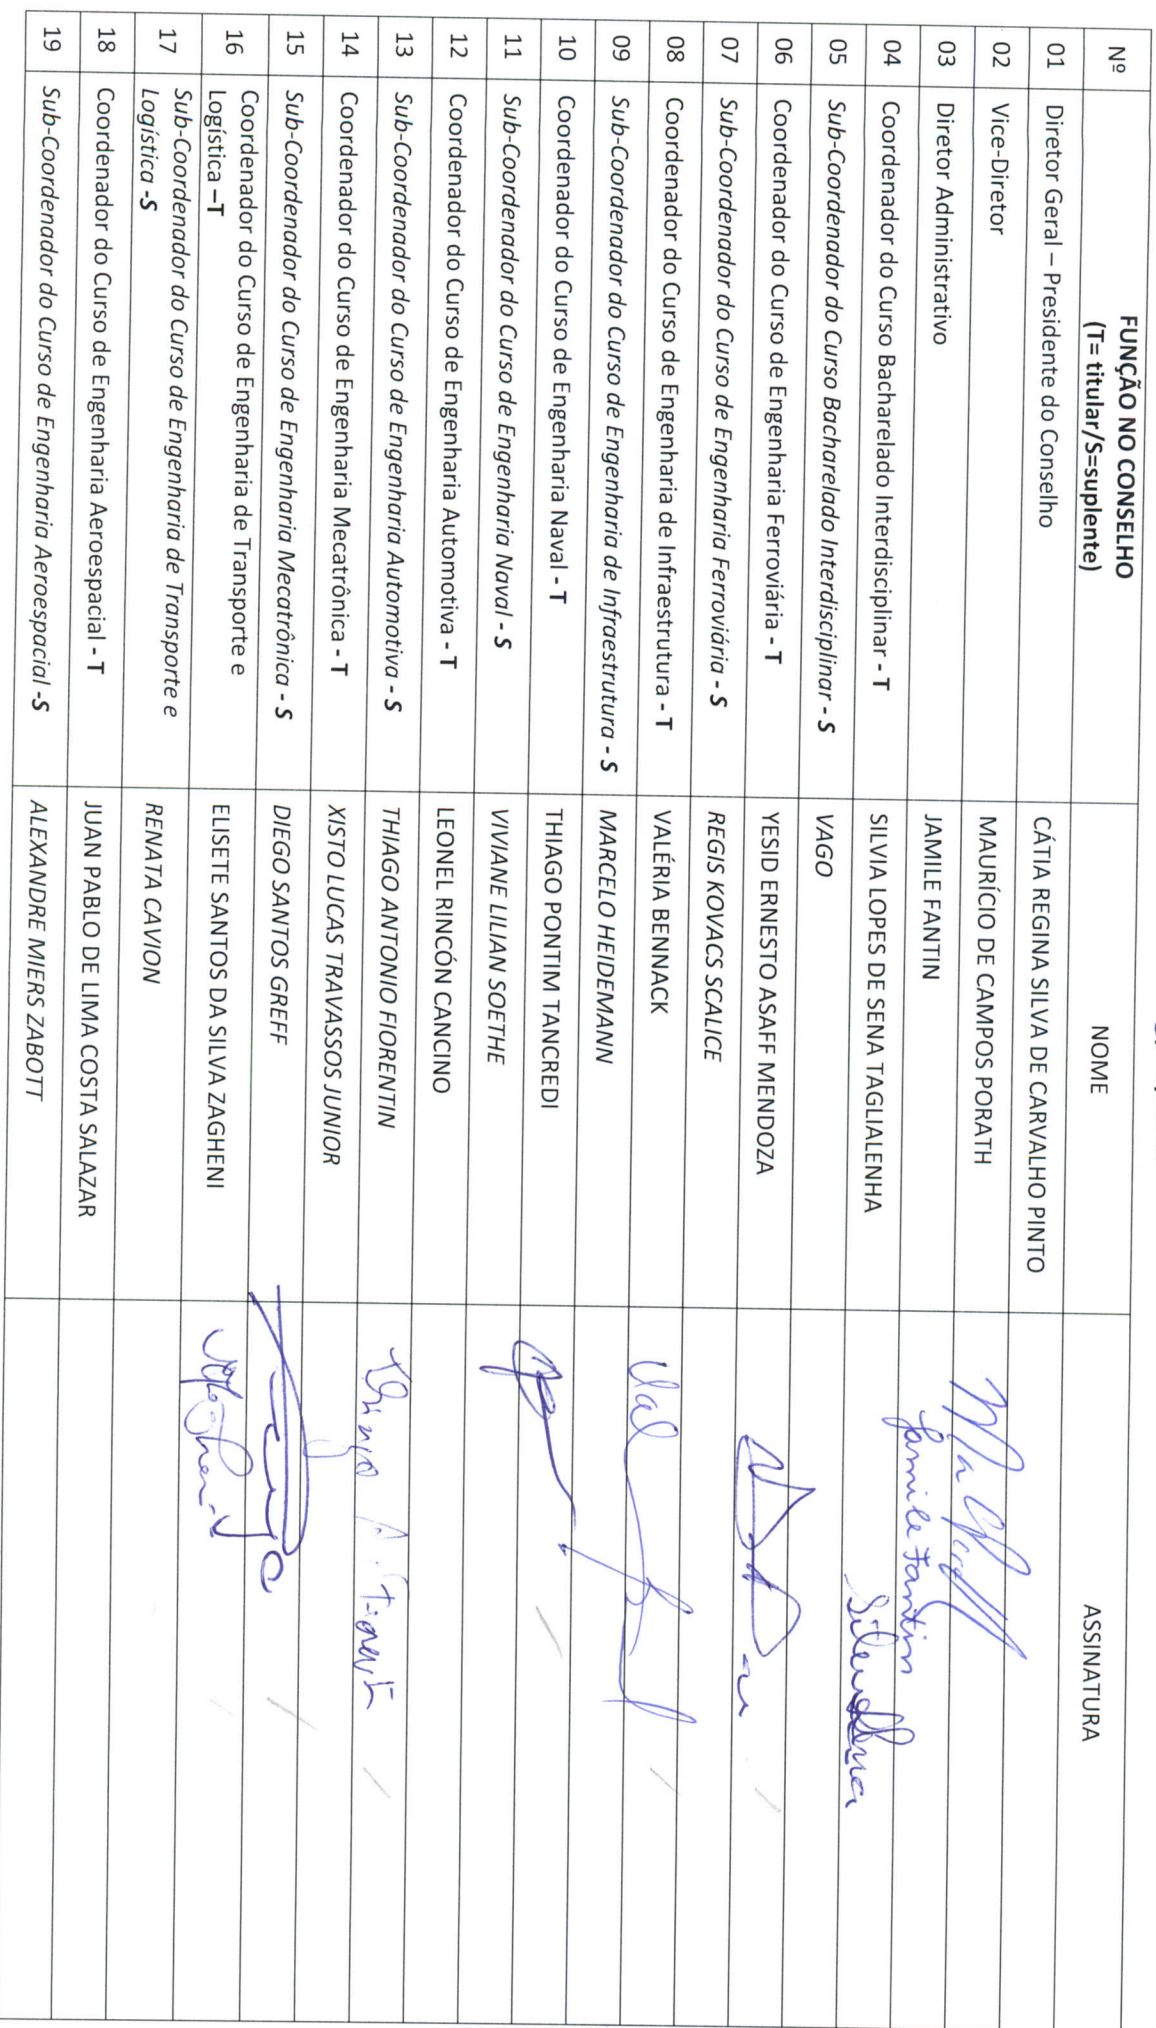 Nº FUNÇÃO NO CONSELHO NOME ASSINATURA
(T= titular/S=suplente)
01 Diretor Geral – Presidente do Conselho CÁTIA REGINA SILVA DE CARVALHO PINTO
02 Vice-Diretor MAURÍCIO DE CAMPOS PORATH
03 Diretor Administrativo JAMILE FANTIN Jamile Fantin
04 Coordenador do Curso Bacharelado Interdisciplinar - T SILVIA LOPES DE SENA TAGLIALENHA
05 Sub-Coordenador do Curso Bacharelado Interdisciplinar - S VAGO
06 Coordenador do Curso de Engenharia Ferroviária - T YESID ERNESTO ASAFF MENDOZA
07 Sub-Coordenador do Curso de Engenharia Ferroviária - S REGIS KOVACS SCALICE
08 Coordenador do Curso de Engenharia de Infraestrutura - T VALÉRIA BENNACK
09 Sub-Coordenador do Curso de Engenharia de Infraestrutura - S MARCELO HEIDEMANN
10 Coordenador do Curso de Engenharia Naval - T THIAGO PONTIM TANCREDI
11 Sub-Coordenador do Curso de Engenharia Naval - S VIVIANE LILIAN SOETHE
12 Coordenador do Curso de Engenharia Automotiva - T LEONEL RINCÓN CANCINO
13 Sub-Coordenador do Curso de Engenharia Automotiva - S THIAGO ANTONIO FIORENTIN
14 Coordenador do Curso de Engenharia Mecatrônica - T XISTO LUCAS TRAVASSOS JUNIOR
15 Sub-Coordenador do Curso de Engenharia Mecatrônica - S DIEGO SANTOS GREFF
16 Coordenador do Curso de Engenharia de Transporte e
Logística –T ELISETE SANTOS DA SILVA ZAGHENI
17 Sub-Coordenador do Curso de Engenharia de Transporte e
Logística -S RENATA CAVION
18 Coordenador do Curso de Engenharia Aeroespacial - T JUAN PABLO DE LIMA COSTA SALAZAR
19 Sub-Coordenador do Curso de Engenharia Aeroespacial -S ALEXANDRE MIERS ZABOTT